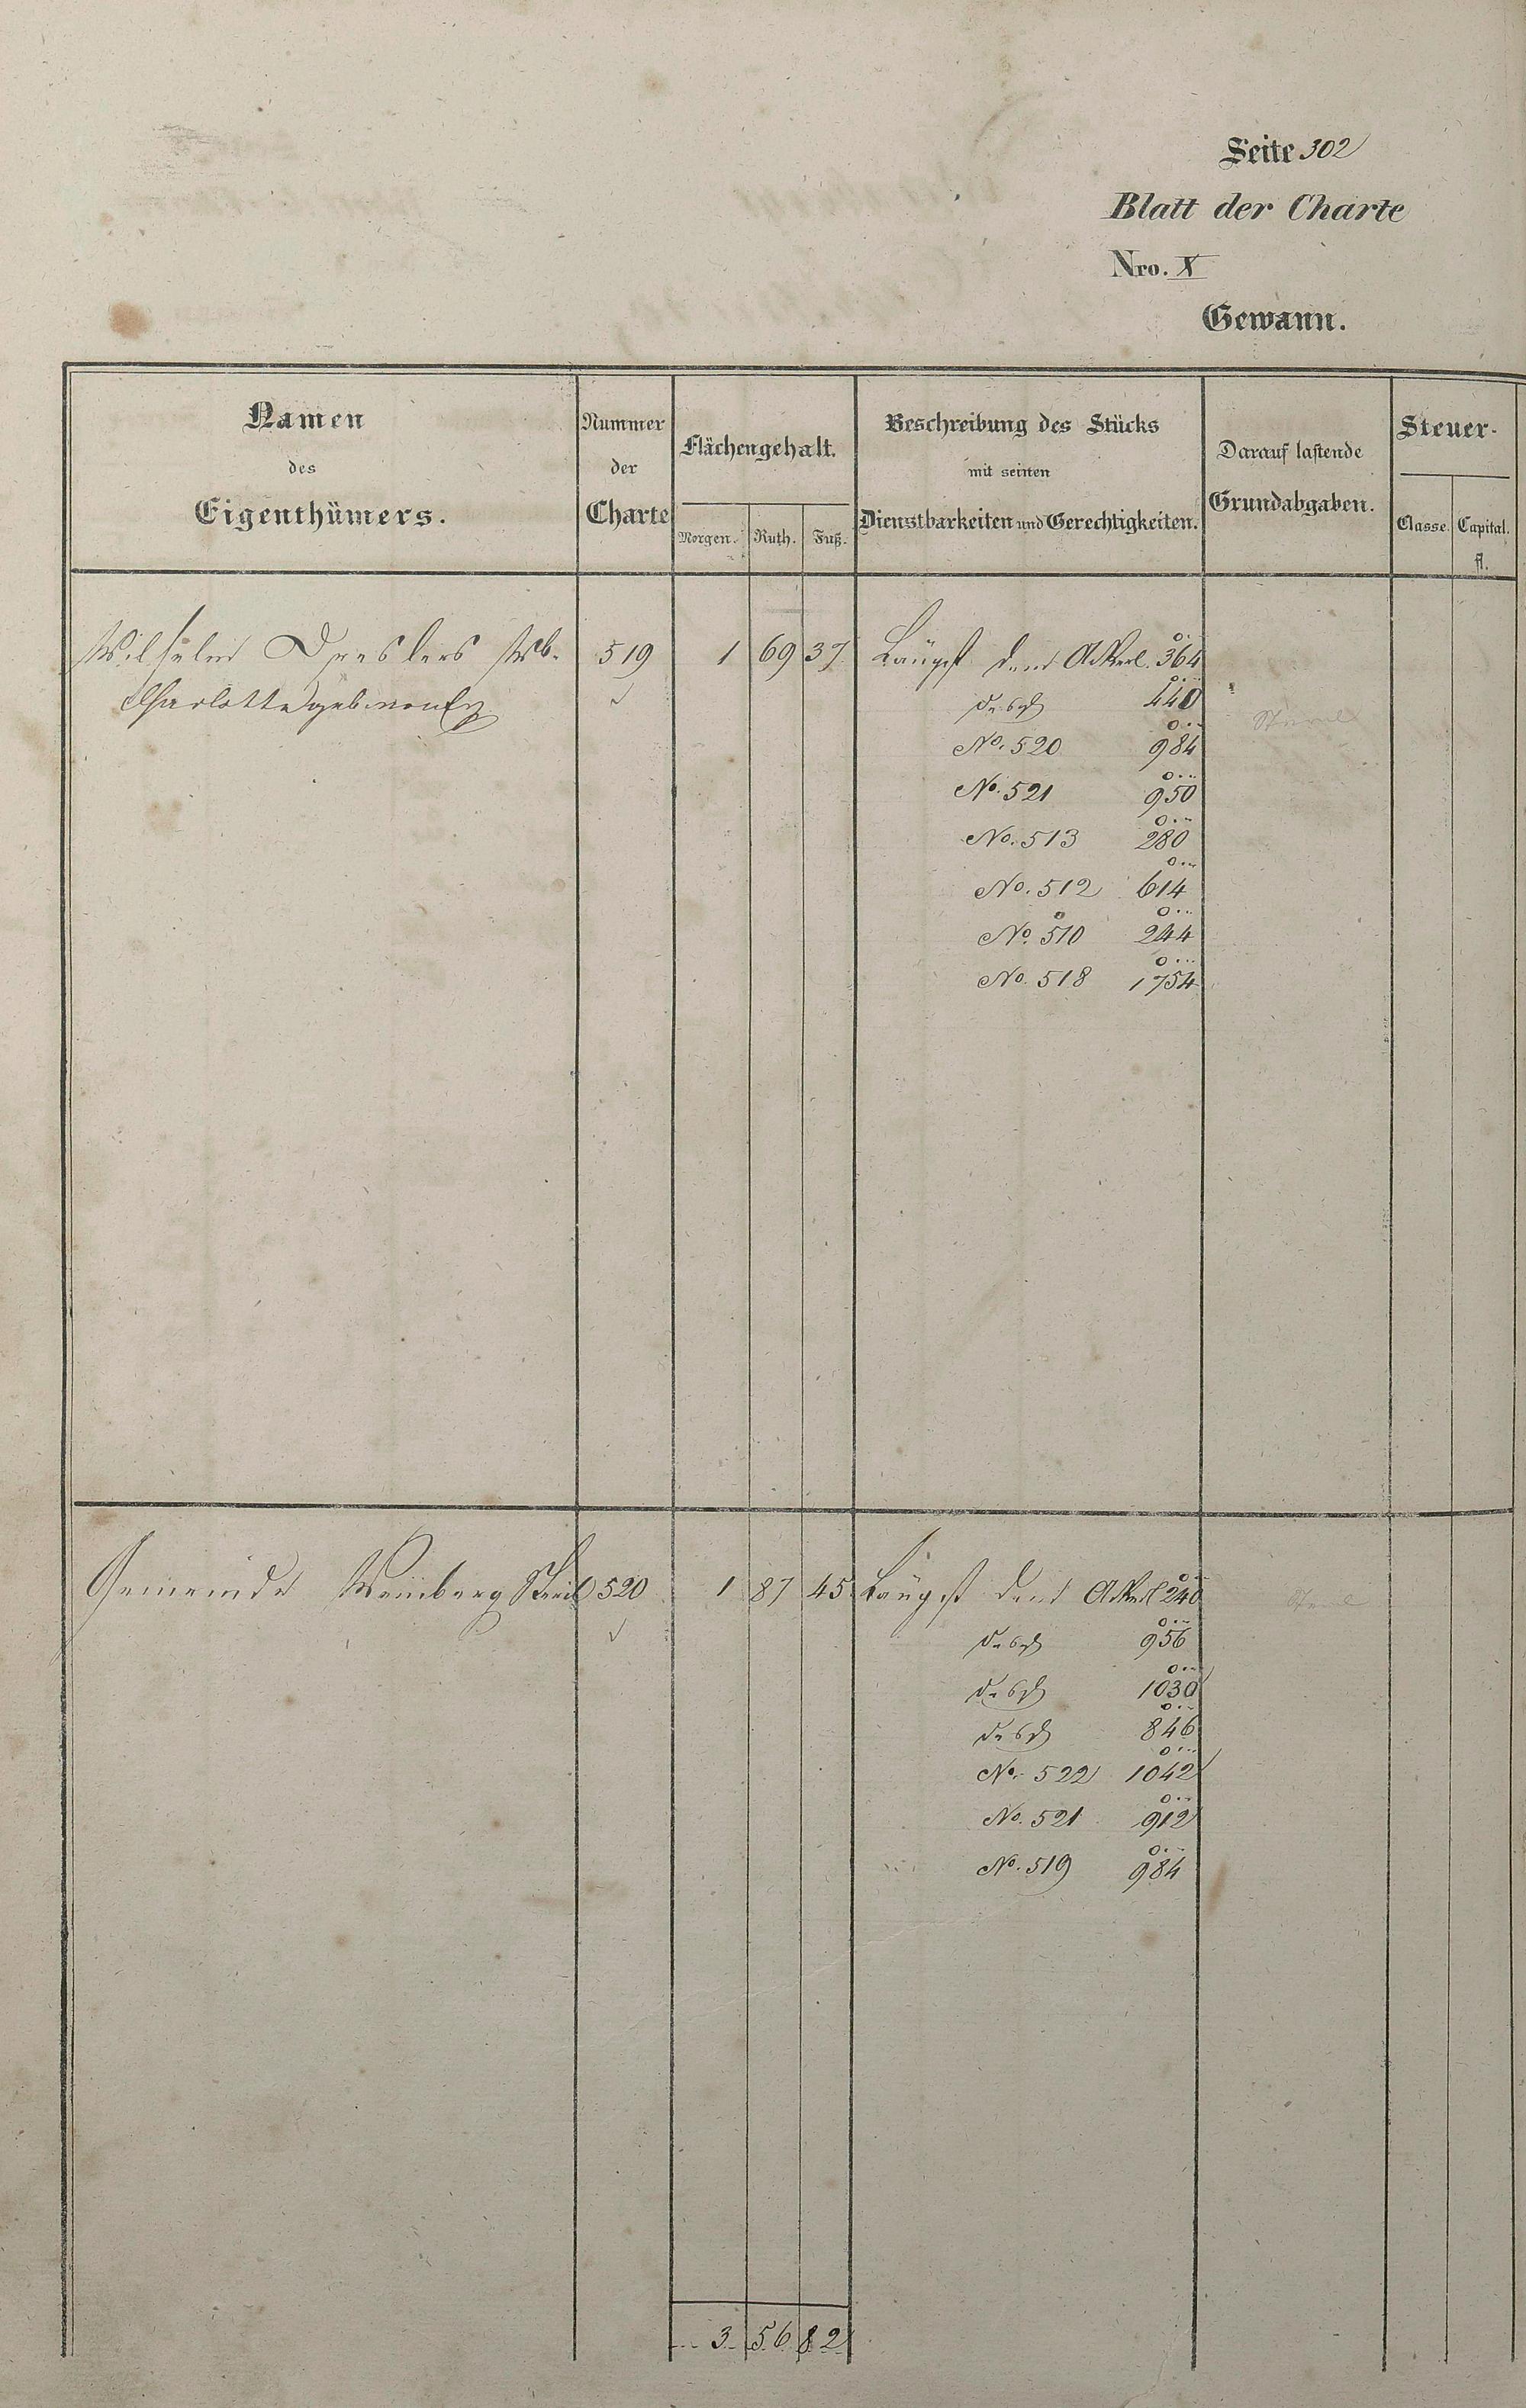 Seite 302
Blatt der Charte
Nro. X
Gewann.
Namen
des
Eigenthümers.
Nummer
der
Charte
Flächengehalt.
Morgen. Ruth. Fuß.
Beschreibung des Stücks
mit seinen
Dienstbarkeiten und Gerechtigkeiten.
Darauf lastende
Grundabgaben.
Steuer-
Classe. Capital.
fl.
Wilhelm Dreslers Wb. 519 1 69 37 Längst dem 364
Charlotte geb. 440
No. 520 984
No. 521 950
No. 513 280
No. 512 614
No. 510 244
No. 518 1754
Gemeinde 520 1 87 45 Längst dem 240
956
1030
846
No. 522 1042
No. 521 912
No. 519 984
3 56 82